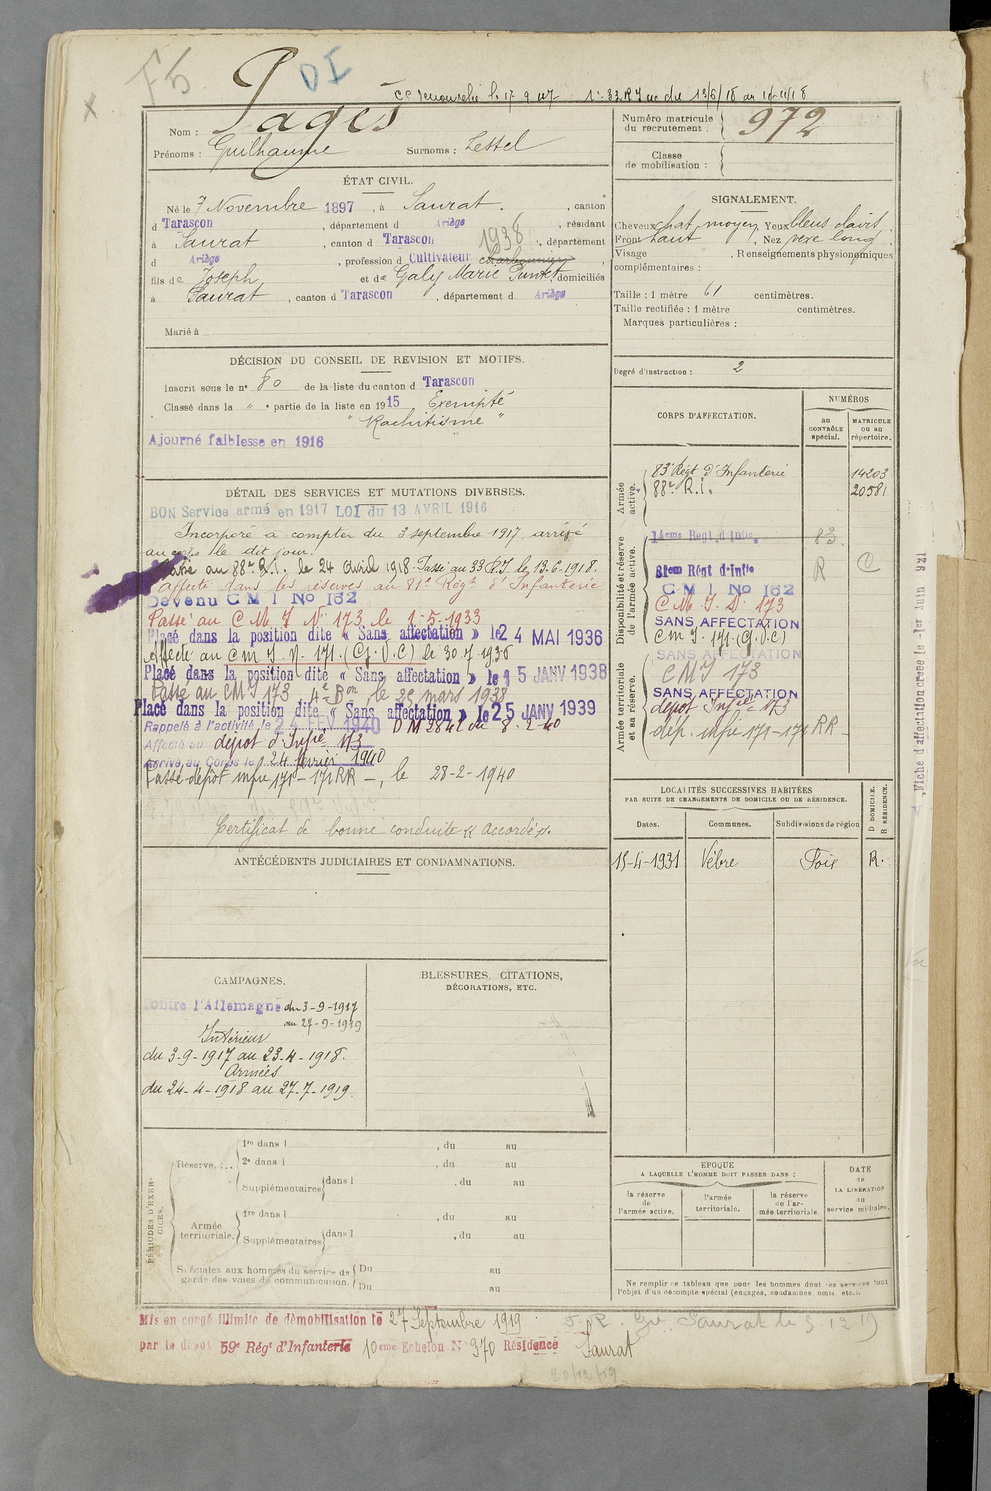 F5
DI
cc renouvelé le 17 9 1 33 R I du 13/6/18 au
Nom : Pagès
Prénoms : Guilhaume Surnoms : Lestel
Numéro matricule
du recrutement : 972
Classe
de mobilisation :
ÉTAT CIVIL.
Né le 7 Novembre 1897, à Saurat., canton
d Tarascon, département d Ariège, résidant
à Saurat, canton d Tarascon 1938, département
d Ariège, profession d Cultivateur
fils de Joseph et de Galy Marie domiciliés
à Saurat, canton d Tarascon, département d Ariège
Marié à
SIGNALEMENT.
Cheveux chat. moyen Yeux bleus clairs
Front haut, Nez vexe long
Visage, Renseignements physionomiques
complémentaires :
Taille : 1 mètre 61 centimètres.
Taille rectifiée : 1 mètre centimètres.
Marques particulières :
Degré d'instruction : 2
DÉCISION DU CONSEIL DE REVISION ET MOTIFS.
Inscrit sous le n° 80 de la liste du canton d Tarascon
Classé dans la " partie de la liste en 1915 Exempté
" Rachitisme "
Ajourné faiblesse en 1916
DÉTAIL DES SERVICES ET MUTATIONS DIVERSES.
BON Service armé en 1917 LOI du 13 AVRIL 1916
Incorporé à compter du 3 septembre 1917, arrivé
au corps le dit jour.
Passé au 88e R.I. le 24 Avril 1918. Passé au 33 R.I le 13-6-1918.
affecté dans les réserves au 81e Régt d'Infanterie
Devenu C M I No 162
Passé au C M I N° 173 le 1-5-1933
Placé dans la position dite « Sans affectation » le 24 MAI 1936
Affecté au C M I N° 171 (G.V.C) le 30.7.1936
Placé dans la position dite « Sans affectation » le 15 JANV 1938
Passé au CMI 173 4e Bon, le 22 mars 1938
Placé dans la position dite « Sans affectation » le 25 JANV 1939
Rappelé à l'activité le 24 FEV 1940 DM 2842 du 8-2-40
Affecté au dépôt d'Infie 173
Arrivé au Corps le 24 février 1940
Passé dépôt infie 171-171RR-, le 28-2-1940
Certificat de bonne conduite « Accordé ».
CORPS D'AFFECTATION.
NUMÉROS
au
CONTRÔLE
spécial.
MATRICULE
ou au
répertoire.
Armée
active.
83e Régt d'Infanterie 14203
88e R.I. 20581
Disponibilité et réserve
de l'armée active.
14eme Regt d'infie 83.
81em Régt d'infie R C
C M I No 162
C M I N° 173
SANS AFFECTATION
C m I 171 (G.V.C)
Armée territoriale
et sa réserve.
SANS AFFECTATION
CMI 173
SANS AFFECTATION
dépôt Infie 173
dép. infie 171-171 RR-
Fiche d'affectation créée le 1er Juin 921
ANTÉCÉDENTS JUDICIAIRES ET CONDAMNATIONS.
LOCALITÉS SUCCESSIVES HABITÉES
PAR SUITE DE CHANGEMENTS DE DOMICILE OU DE RÉSIDENCE.
Dates. Communes. Subdivisions de région D DOMICILE. R RÉSIDENCE.
15-4-1931 Vèbre Foix R.
CAMPAGNES.
Contre l'Allemagne du 3-9-1917
au 27-9-1919
Intérieur
du 3-9-1917 au 23-4-1918.
Armées
du 24-4-1918 au 27-7-1919.
BLESSURES, CITATIONS,
DÉCORATIONS, ETC.
PÉRIODES D'EXERCICES.
Réserve. 1re dans l, du au
2e dans l, du au
Supplémentaires dans l, du au
Armée
territoriale. 1re dans l, du au
Supplémentaires dans l, du au
Spéciales aux hommes du service de
garde des voies de communication. Du au
Du au
EPOQUE
A LAQUELLE L'HOMME DOIT PASSER DANS :
la réserve
de
l'armée active.
l'armée
territoriale.
la réserve
de l'armée territoriale
DATE
de
LA LIBÉRATION
du
service militaire.
Ne remplir ce tableau que pour les hommes dont les services font
l'objet d'un décompte spécial (engagés, condamnés, omis, etc.).
Mis en congé illimité de démobilisation le 27 Septembre 1919
par le dépôt 59e Régt d'Infanterie 10eme Echelon N° 370 Résidence Saurat
Saurat le 5-12 19
20/12/19